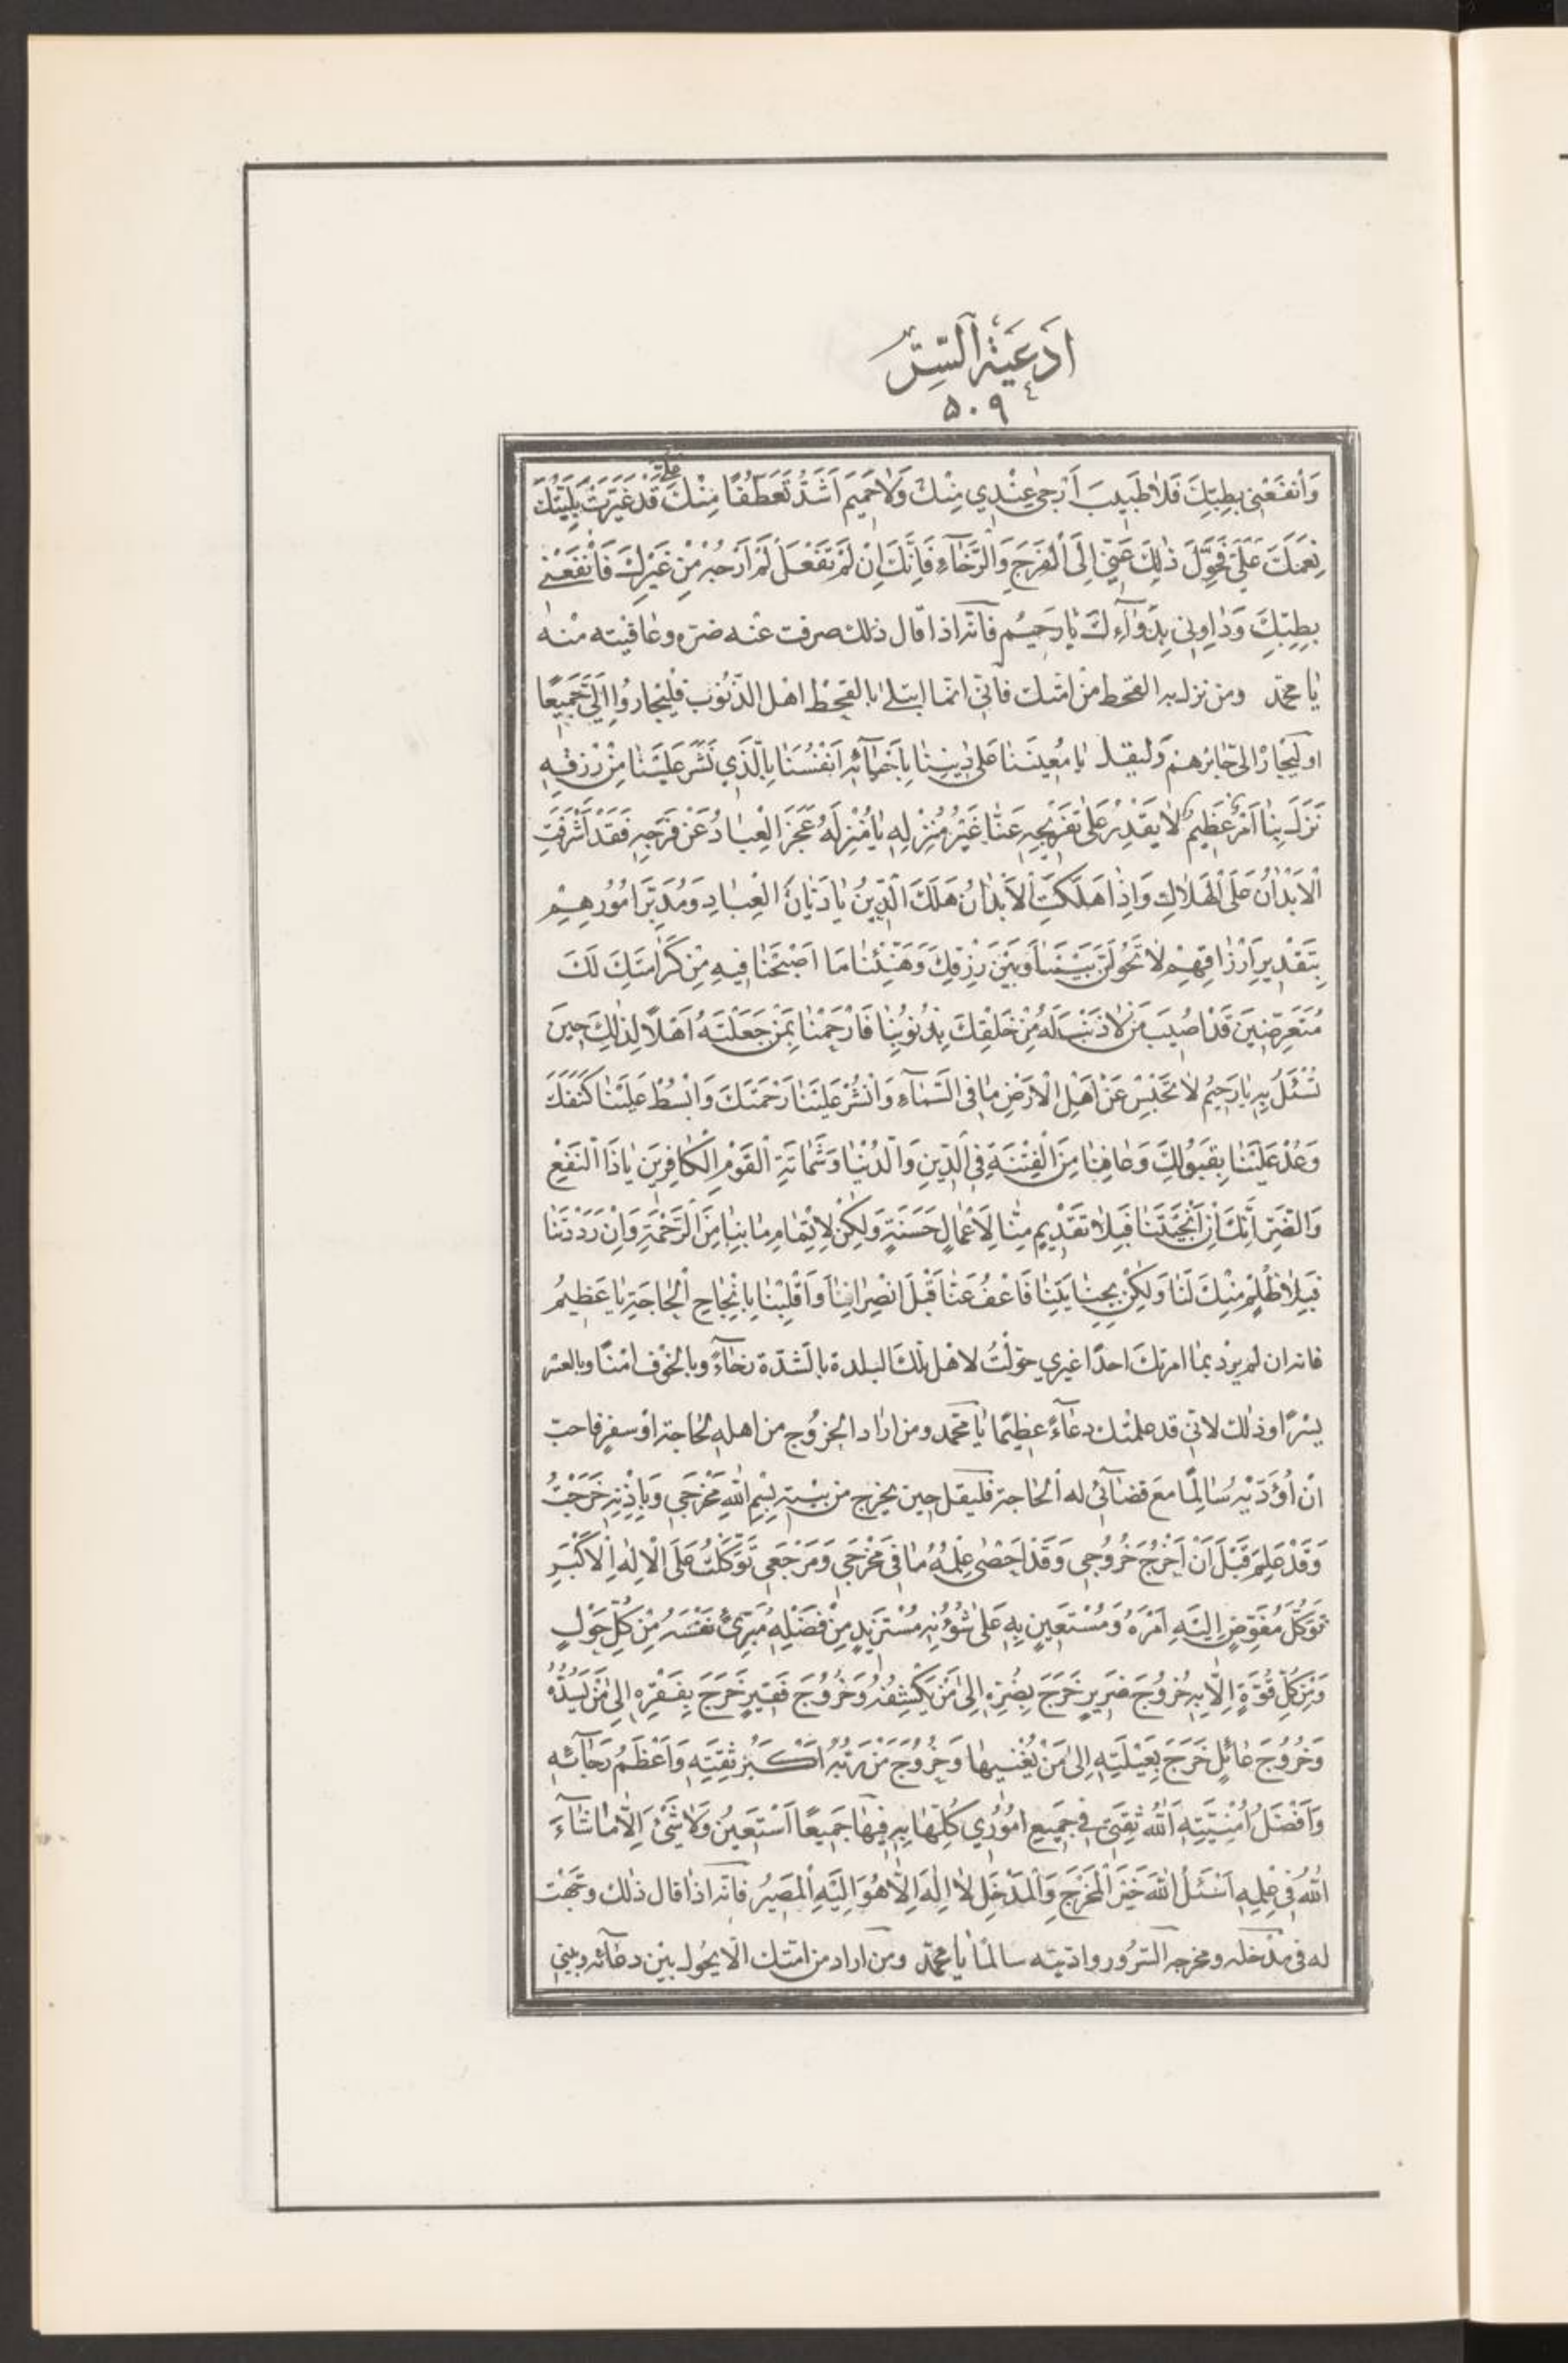 اَدْعِيَةُ السِّرِّ
۵۰۹
وَانْفَعْنِي بِطِبِّكَ فَلَا طَبِيبَ اَرْجىٰ عِنْدِي مِنْكَ وَلَا حَمِيمَ اَشَدُّ تَعَطُّفًا مِنْكَ قَدْ غَيَّرَتْ بَلِيَّتُكَ
نِعَمَكَ عَلَيَّ فَحَوِّلْ ذٰلِكَ عَنِّي اِلَى الْفَرَجِ وَالرَّخَآءِ فَاِنَّكَ اِنْ لَمْ تَفْعَلْ لَمْ اَرْجُهُ مِنْ غَيْرِكَ فَانْفَعْنِي
بِطِبِّكَ وَدَاوِنِي بِدَوَآءِكَ يَا رَحِيمُ فانّه اذا قال ذلك صرفت عنه ضرّه وعافيته منه
يا محمّد ومن نزل به القحط من امّتك فانّي انّما ابتلي بالقحط اهل الذّنوب فليجاروا اليّ جميعًا
او ليجار اليّ جائرهم وليقل يَا مُعِينَنَا عَلىٰ دِينِنَا بِاِحْيَآئِهِ اَنْفُسَنَا بِالَّذِي نَشَرَ عَلَيْنَا مِنْ رِزْقِهِ
نَزَلَ بِنَا اَمْرٌ عَظِيمٌ لَا يَقْدِرُ عَلىٰ تَفْرِيجِهِ عَنَّا غَيْرُ مُنْزِلِهِ يَا مُنْزِلَهُ عَجَزَ الْعِبَادُ عَنْ فَرَجِهِ فَقَدْ اَشْرَفَتِ
الْاَبْدَانُ عَلَى الْهَلَاكِ وَاِذَا هَلَكَتِ الْاَبْدَانُ هَلَكَ الدِّينُ يَا دَيَّانَ الْعِبَادِ وَمُدَبِّرَ اُمُورِهِمْ
بِتَقْدِيرِ اَرْزَاقِهِمْ لَا تَحُولَنَّ بَيْنَنَا وَبَيْنَ رِزْقِكَ وَهَنِّئْنَا مَا اَصْبَحْنَا فِيهِ مِنْ كَرَامَتِكَ لَكَ
مُتَعَرِّضِينَ قَدْ اُصِيبَ مَنْ لَا ذَنْبَ لَهُ مِنْ خَلْقِكَ بِذُنُوبِنَا فَارْحَمْنَا بِمَنْ جَعَلْتَهُ اَهْلًا لِذٰلِكَ حِينَ
تُسْئَلُ بِهِ يَا رَحِيمُ لَا تَحْبِسْ عَنْ اَهْلِ الْاَرْضِ مَا فِي السَّمَآءِ وَانْشُرْ عَلَيْنَا رَحْمَتَكَ وَابْسُطْ عَلَيْنَا كَنَفَكَ
وَعُدْ عَلَيْنَا بِقَبُولِكَ وَعَافِنَا مِنَ الْفِتْنَةِ فِي الدِّينِ وَالدُّنْيَا وَشَمَاتَةِ الْقَوْمِ الْكَافِرِينَ يَا ذَا النَّفْعِ
وَالضَّرِّ اِنَّكَ اِنْ اَنْجَيْتَنَا فَبِلَا تَقْدِيمٍ مِنَّا لِاَعْمَالٍ حَسَنَةٍ وَلٰكِنْ لِاِتْمَامِ مَا بِنَا مِنَ الرَّحْمَةِ وَاِنْ رَدَدْتَنَا
فَبِلَا ظُلْمٍ مِنْكَ لَنَا وَلٰكِنْ بِجِنَايَتِنَا فَاعْفُ عَنَّا قَبْلَ انْصِرَافِنَا وَاَقْلِبْنَا بِاِنْجَاحِ الْحَاجَةِ يَا عَظِيمُ
فانّه ان لم يرد بما امرتك احدًا غيري حوّلتُ لاهل تلك البلدة بالشدّة رخآءً وبالخوف امنًا وبالعسر
يسرًا وذلك لانّي قد علمتك دعآءً عظيمًا يا محمّد ومن اراد الخروج من اهله لحاجة او سفر فاحبّ
ان اؤدّيه سالمًا مع قضآئي له الحاجة فليقل حين يخرج من بيته بِسْمِ اللهِ مَخْرَجِي وَبِاِذْنِهِ خَرَجْتُ
وَقَدْ عَلِمَ قَبْلَ اَنْ اَخْرُجَ خُرُوجِي وَقَدْ اَحْصىٰ عِلْمُهُ مَا فِي مَخْرَجِي وَمَرْجَعِي تَوَكَّلْتُ عَلَى الْاِلٰهِ الْاَكْبَرِ
تَوَكُّلَ مُفَوِّضٍ اِلَيْهِ اَمْرَهُ وَمُسْتَعِينٍ بِهِ عَلىٰ شُؤُنِهِ مُسْتَزِيدٍ مِنْ فَضْلِهِ مُبَرِّئٌ نَفْسَهُ مِنْ كُلِّ حَوْلٍ
وَمِنْ كُلِّ قُوَّةٍ اِلَّا بِهِ خُرُوجَ ضَرِيرٍ خَرَجَ بِضُرِّهِ اِلىٰ مَنْ يَكْشِفُهُ وَخُرُوجَ فَقِيرٍ خَرَجَ بِفَقْرِهِ اِلىٰ مَنْ يَسُدُّهُ
وَخُرُوجَ عَائِلٍ خَرَجَ بِعَيْلَتِهِ اِلىٰ مَنْ يُغْنِيهَا وَخُرُوجَ مَنْ رَبُّهُ اَكْبَرُ ثِقَتِهِ وَاَعْظَمُ رَجَآئِهِ
وَاَفْضَلُ اُمْنِيَّتِهِ اَللهُ ثِقَتِي فِي جَمِيعِ اُمُورِي كُلِّهَا بِهِ فِيهَا جَمِيعًا اَسْتَعِينُ وَلَا شَيْءَ اِلَّا مَا شَآءَ
اللهُ فِي عِلْمِهِ اَسْئَلُ اللهَ خَيْرَ الْمَخْرَجِ وَالْمَدْخَلِ لَا اِلٰهَ اِلَّا هُوَ اِلَيْهِ الْمَصِيرُ فانّه اذا قال ذلك وجّهت
له في مدخله ومخرجه السّرور وادّيته سالمًا يا محمّد ومن اراد من امّتك الّا يحول بين دعآئه وبيني